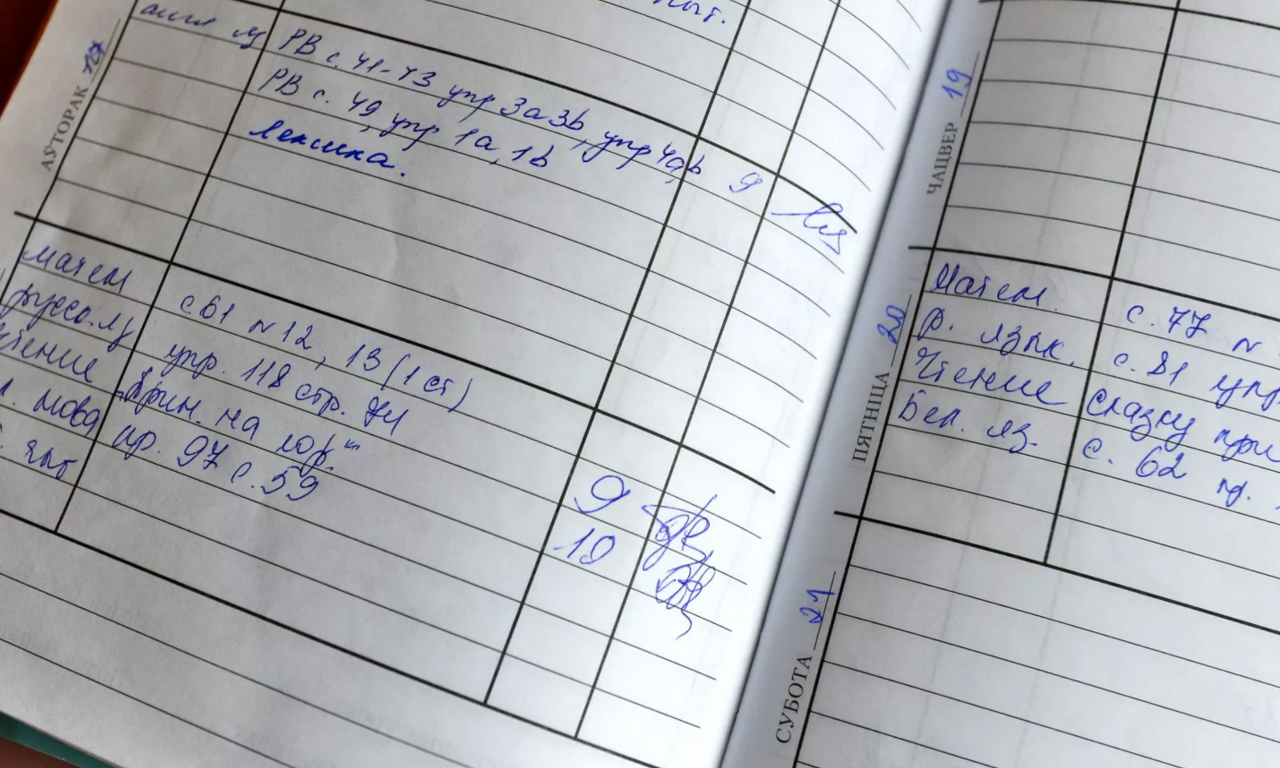 АЎТОРАК 17
англ яз РВ с. 41-43 упр 3а 3b, упр 4a,b 9
РВ с. 49, упр 1a, 1b
лексика.
матем с 61 № 12, 13 (1 ст)
русс. яз упр. 118 стр. 74
чтение
мова пр. 97 с. 59
9
10
ЧАЦВЕР 19
ПЯТНІЦА 20
Матем с. 77 №
р. язык. с. 81 упр
Чтение Сказку при
Бел. яз. с. 62 пр.
СУБОТА 21